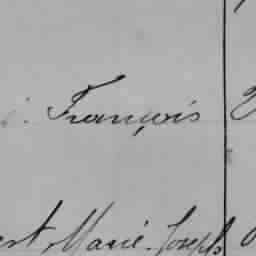 François
Marie-Joseph